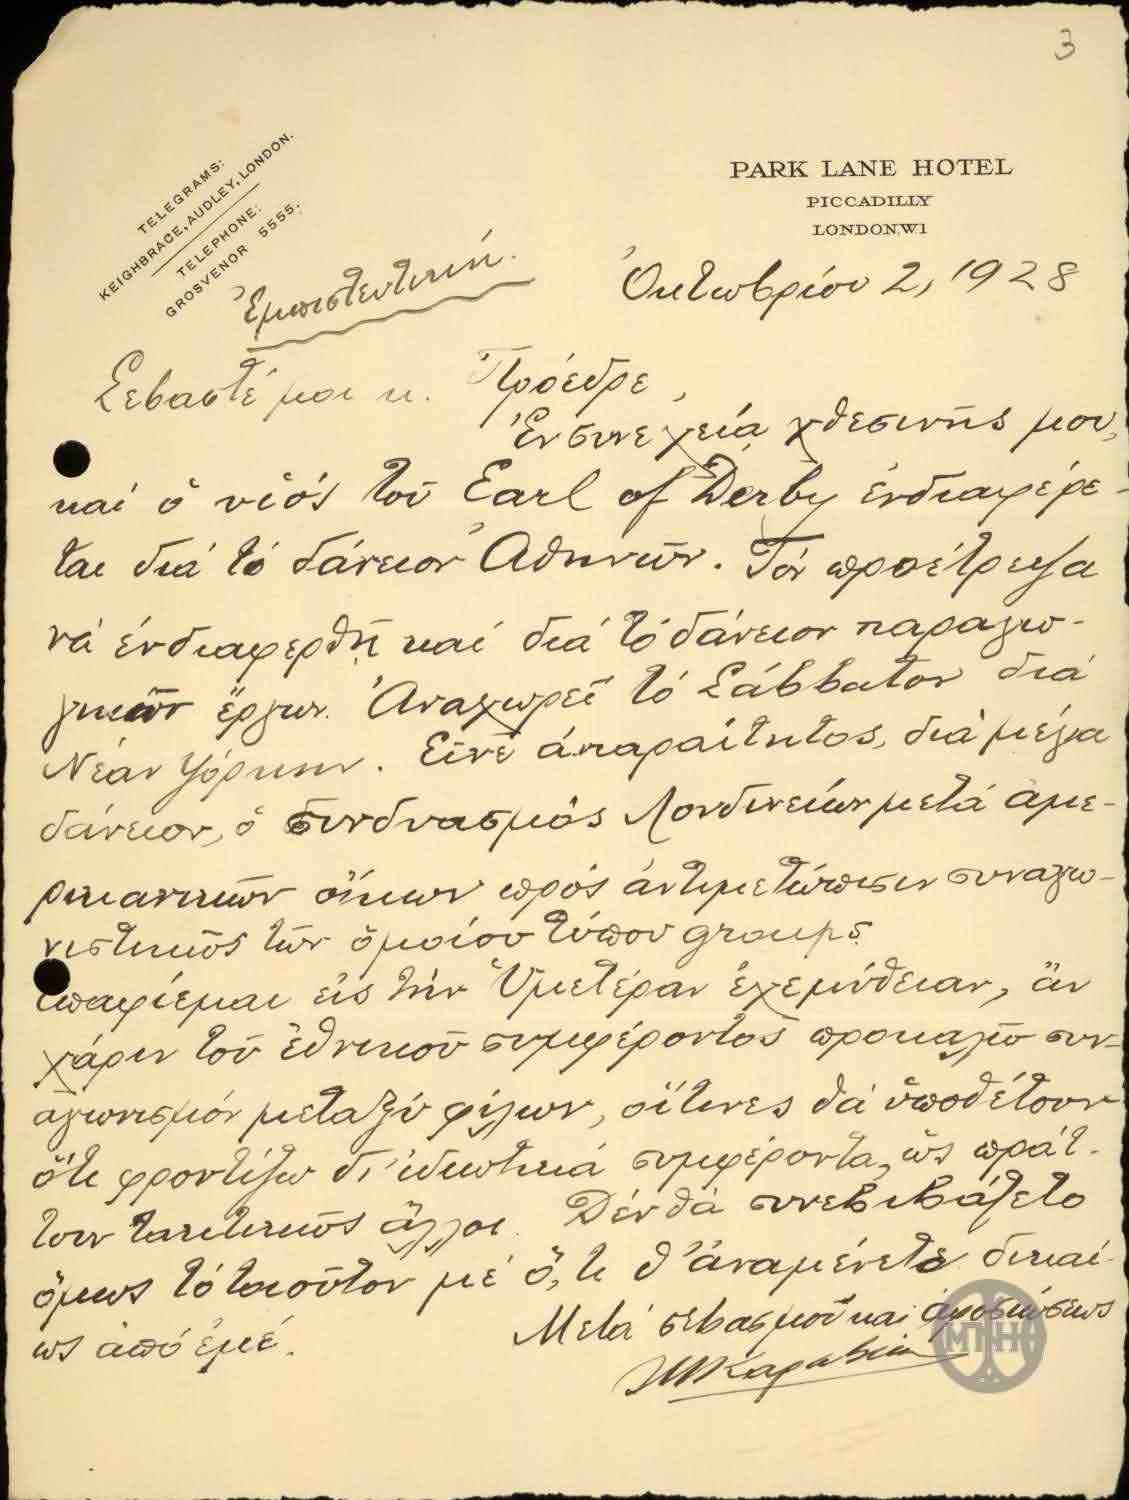 3
TELEGRAMS:
KEIGHBRACE, AUDLEY, LONDON.
TELEPHONE:
GROSVENOR 5555.
PARK LANE HOTEL
PICCADILLY
LONDON, W1
Ἐμπιστευτική.
Ὀκτωβρίου 2, 1928
Σεβαστέ μοι κ. Πρόεδρε,
Ἐν συνεχείᾳ χθεσινῆς μου,
καί ὁ υἱός τοῦ Earl of Derby ἐνδιαφέρε-
ται διά τό δάνειον Ἀθηνῶν. Τόν προέτρεψα
νά ἐνδιαφερθῇ καί διά τό δάνειον παραγω-
γικῶν ἔργων. Ἀναχωρεῖ τό Σάββατον διά
Νέαν Υόρκην. Εἶνε ἀπαραίτητος, διά μέγα
δάνειον, ὁ συνδυασμός Λονδινείων μετά ἀμε-
ρικανικῶν οἴκων πρός ἀντιμετώπισιν συναγω-
νιστικῶς τῶν ὁμοίου τύπου groups.
Ἐπαφίεμαι εἰς τήν Ὑμετέραν ἐχεμύθειαν, ἄν
χάριν τοῦ ἐθνικοῦ συμφέροντος προκαλῶ συν-
αγωνισμόν μεταξύ φίλων, οἵτινες θά ὑποθέτουν
ὅτι φροντίζω δι' ἰδιωτικά συμφέροντα, ὡς πράτ-
τουν τακτικῶς ἄλλοι. Δέν θά συνεβιβάζετο
ὅμως τό τοιοῦτον μέ ὅ,τι θ' ἀναμένετε δικαί-
ως ἀπό ἐμέ.
Μετά σεβασμοῦ καί ἀφοσιώσεως
ΜΠΗ